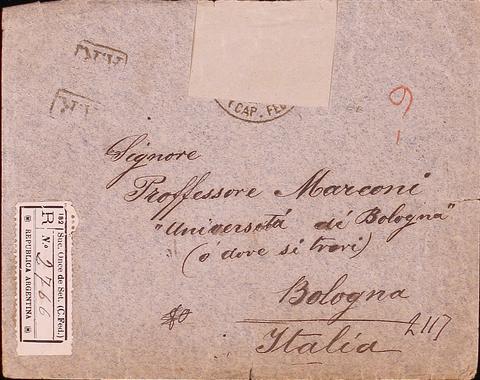 CAP. FED
9
Signore
Proffessore Marconi
"Universetá di Bologna"
(o dove si trovi)
Bologna
Italia
2117
182
Suc. Once de Set. (C. Fed.)
R
Nº 2766
REPUBLICA ARGENTINA